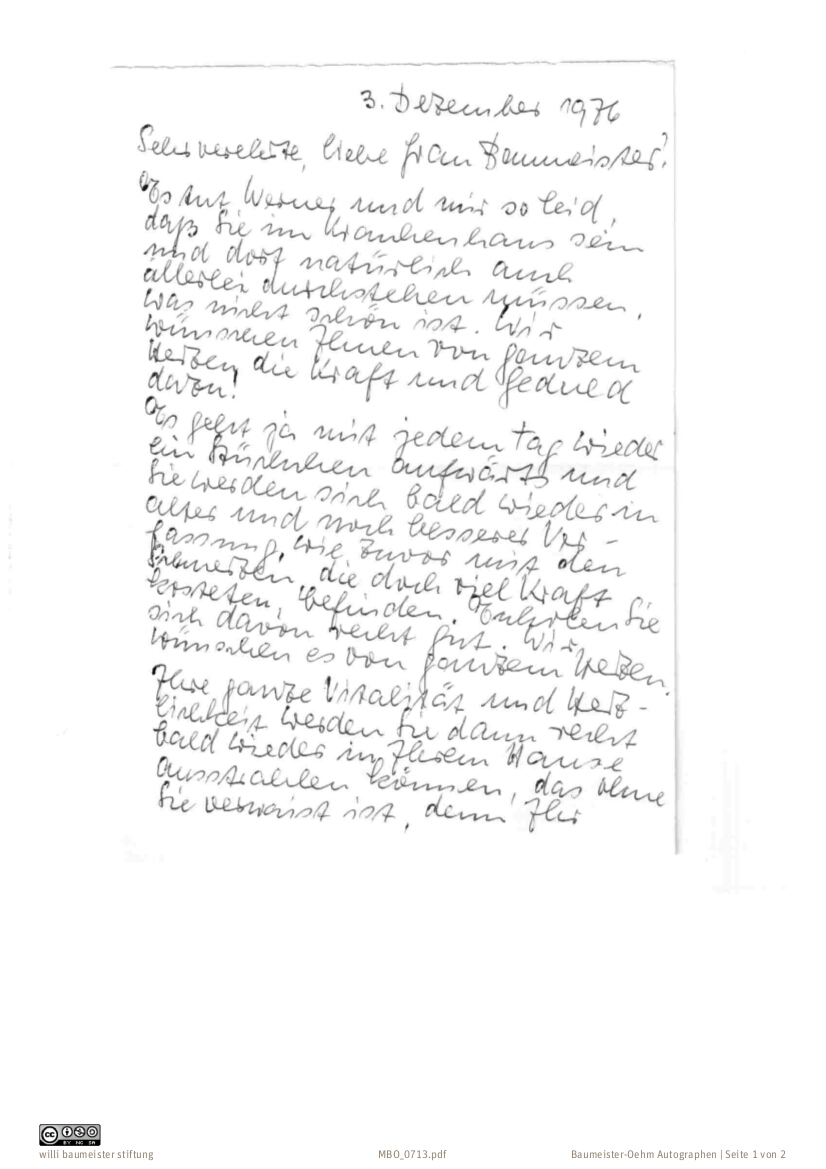 3. Dezember 1976
Sehr verehrte, liebe Frau Baumeister!
Es tut Werner und mir so leid,
daß Sie im Krankenhaus sein
und dort natürlich auch
allerlei durchstehen müssen,
was nicht schön ist. Wir
wünschen Ihnen von ganzem
Herzen die Kraft und Geduld
dazu!
Es geht ja mit jedem Tag wieder
ein Stückchen aufwärts und
Sie werden sich bald wieder in
alter und noch besserer Ver-
fassung, wie zuvor mit den
Schmerzen, die doch viel Kraft
kosteten, befinden. Erholen Sie
sich davon recht gut. Wir
wünschen es von ganzem Herzen.
Ihre ganze Vitalität und Herz-
lichkeit werden Sie dann recht
bald wieder in Ihrem Hause
ausstrahlen können, das ohne
Sie verwaist ist, denn Ihr
CC BY NC SA
willi baumeister stiftung
MBO_0713.pdf
Baumeister-Oehm Autographen | Seite 1 von 2